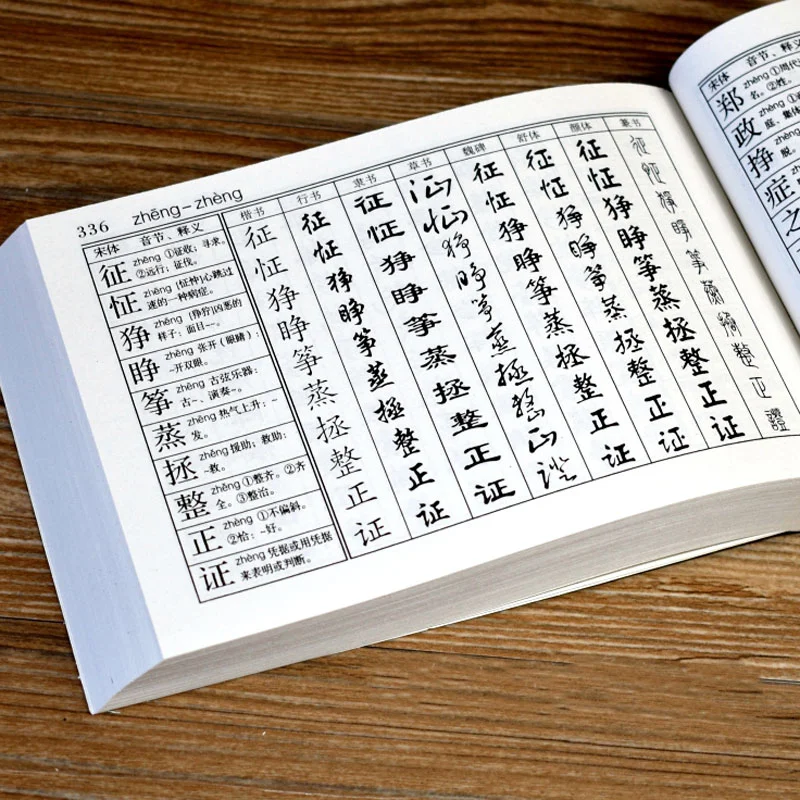 336 zhēng–zhèng
宋体 音节、释义 楷书 行书 隶书 草书 魏碑 舒体 颜体 篆书
征 zhēng ①征收；寻求。
②远行；征伐。
征 征 征 征 征 征 征 征
怔 zhēng [怔忡]心跳过
速的一种病症。
怔 怔 怔 怔 怔 怔 怔 怔
狰 zhēng [狰狞]凶恶的
样子：面目~~。
狰 狰 狰 狰 狰 狰 狰 狰
睁 zhēng 张开（眼睛）：
~开双眼。
睁 睁 睁 睁 睁 睁 睁 睁
筝 zhēng 古弦乐器：
古~、演奏~。
筝 筝 筝 筝 筝 筝 筝 筝
蒸 zhēng 热气上升：~
发。
蒸 蒸 蒸 蒸 蒸 蒸 蒸
拯 zhěng 援助；救助：
~救。
拯 拯 拯 拯 拯 拯 拯
整 zhěng ①整齐。②齐
全。③整治。
整 整 整 整 整 整 整
正 zhèng ①不偏斜。
②恰：~好。
正 正 正 正 正 正 正 正
证 zhèng 凭据或用凭据
来表明或判断。
证 证 证 证 证 证 证 證
宋体 音节、释义
郑 zhèng ①周代
名。②姓。
政 zhèng
庭、集体
挣 zhèng
脱。
症 zhèng
之